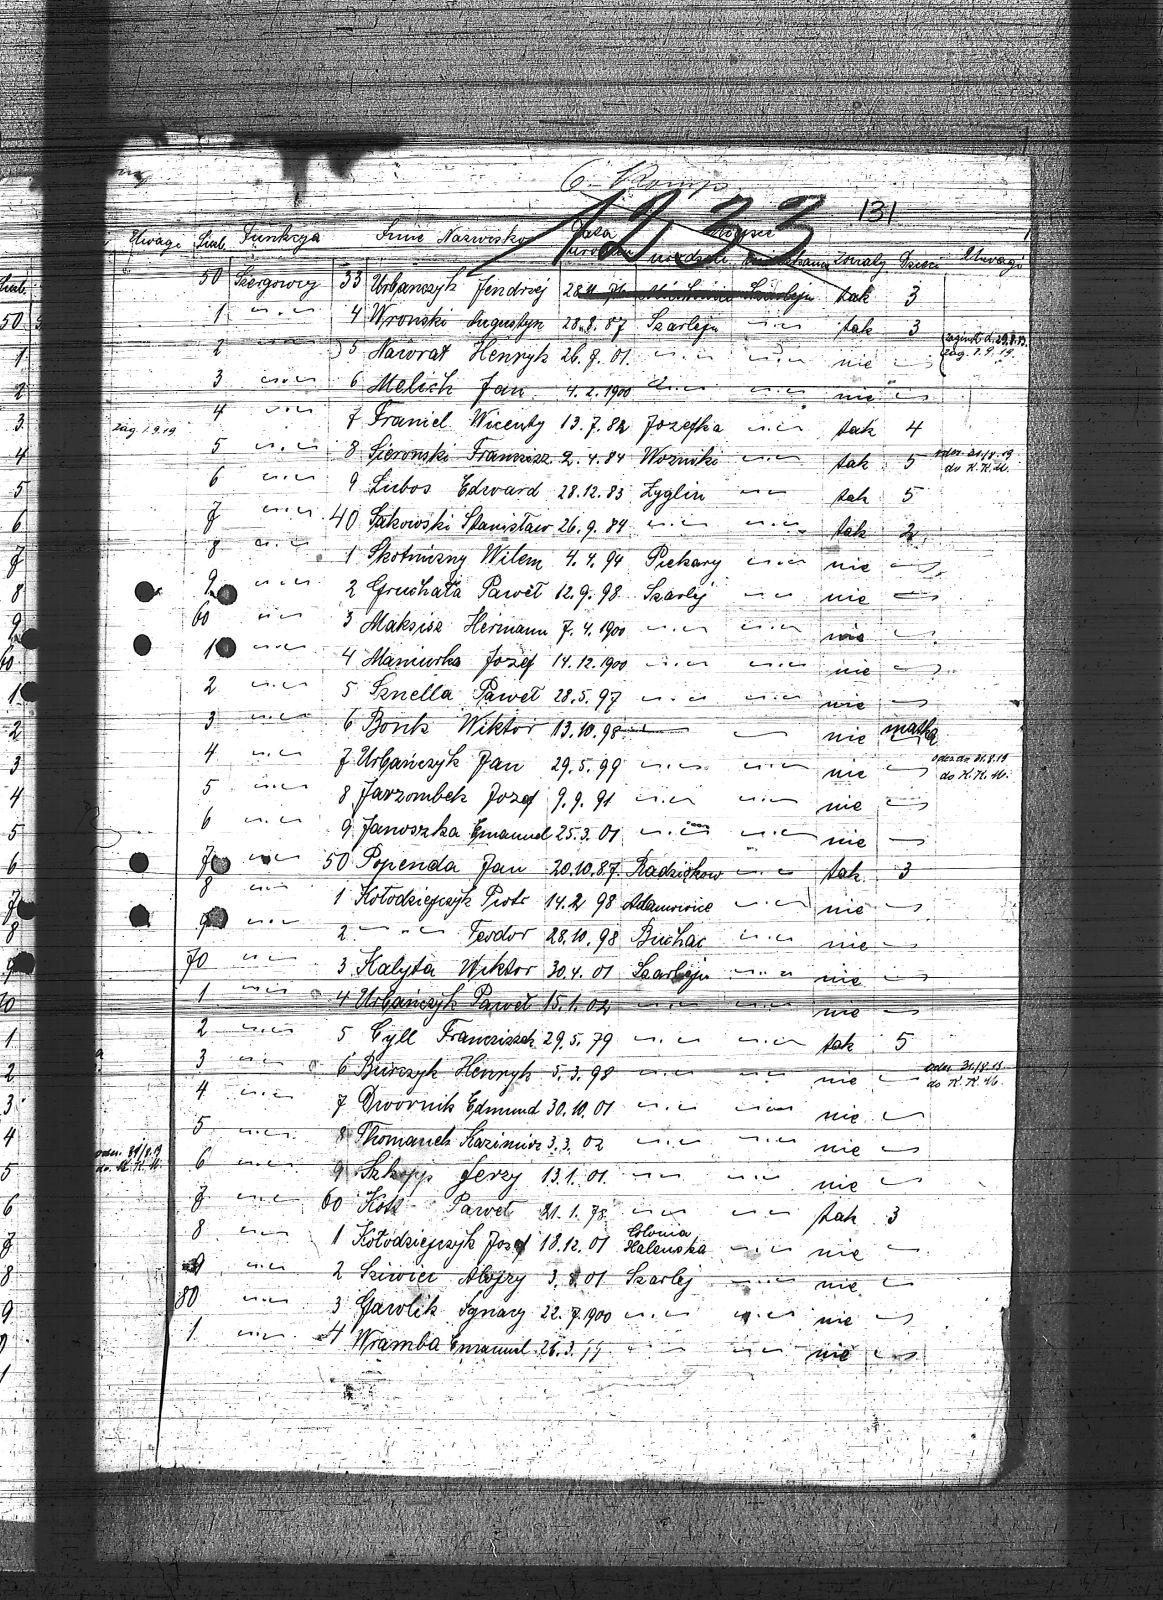 6. Komp.
1233 131
Uwagi Funkcja Imie Nazwisko Data urodzen. Miejsce urodzenia zamieszkania żonaty Dzieci Uwagi
50 Szergowcy 33 Urbańczyk Jendrzej Szarleju tak 3
1 〃 4 Wronski Augustyn 28.8.87 Szarleju 〃 tak 3
2 5 Nawrat Henryk 26.7.01 〃 〃 nie — zaginął d. 29.8.19 zag. 1.9.19.
3 〃 6 Melich Jan 4.2.1900 〃 〃 nie —
zag. 1.9.19 4 〃 7 Franiel Wicenty 13.7.82 Jozefka 〃 tak 4
5 〃 8 Sieronski Francisz. 2.4.84 Wozniki 〃 tak 5 odesz. 21/8.19 do K.K.U.
6 〃 9 Lubos Edward 28.12.83 Zyglin 〃 tak 5
7 〃 40 Sakowski Stanisław 26.9.84 〃 〃 tak 2
8 〃 1 Skotniczny Wilem 4.4.94 Piekary 〃 nie —
9 〃 2 Gruchała Paweł 12.9.98 Szarlej 〃 nie —
60 〃 3 Maksisz Hermann 7.4.1900 〃 〃 nie —
1 〃 4 Maniurka Jozef 14.12.1900 〃 〃 nie —
2 〃 5 Sznella Paweł 28.5.97 〃 〃 nie —
3 〃 6 Bonk Wiktor 13.10.98 — — nie matka
4 〃 7 Urbańczyk Jan 29.5.99 〃 〃 nie — 31.8.19 do K.K.U.
5 〃 8 Jarzombek Jozef 9.9.91 〃 〃 nie —
6 〃 9 Janoszka Emanuel 25.3.01 〃 〃 nie —
7 〃 50 Popenda Jan 20.10.87. Radziokow 〃 tak 3
8 〃 1 Kołodziejczyk Piotr 14.2 98 Adamowice 〃 nie —
9 〃 2 〃 Teodor 28.10.98 Buchac 〃 nie —
70 〃 3 Kalyta Wiktor 30.4.01 Szarleju 〃 nie —
1 〃 4 Urbańczyk Paweł 15.1.02 〃 〃 nie —
2 〃 5 Cyll Franciszek 29.5.79 〃 〃 tak 5
3 〃 6 Burczyk Henryk 5.3.98 〃 〃 nie — odesz. 31/8.19 do K.K.U.
4 〃 7 Dwornik Edmund 30.10.01 〃 〃 nie —
5 〃 8 Thomanek Kazimierz 3.3.02 〃 〃 nie —
odesz. 31/8.19 do K.K.U. 6 〃 9 Jerzy 13.1.01 〃 〃 nie —
7 〃 60 Kotz Paweł 21.1.78 〃 〃 tak 3
8 〃 1 Kołodziejczyk Jozef 18.12.01 Colonia Halenska 〃 nie —
9 〃 2 Sziwiec Alojzy 3.8.01 Szarlej — nie —
80 〃 3 Gawlik Ignacy 22.7.1900 〃 〃 nie —
1 〃 4 Wramba Emanuel 26.3.99 〃 〃 nie —